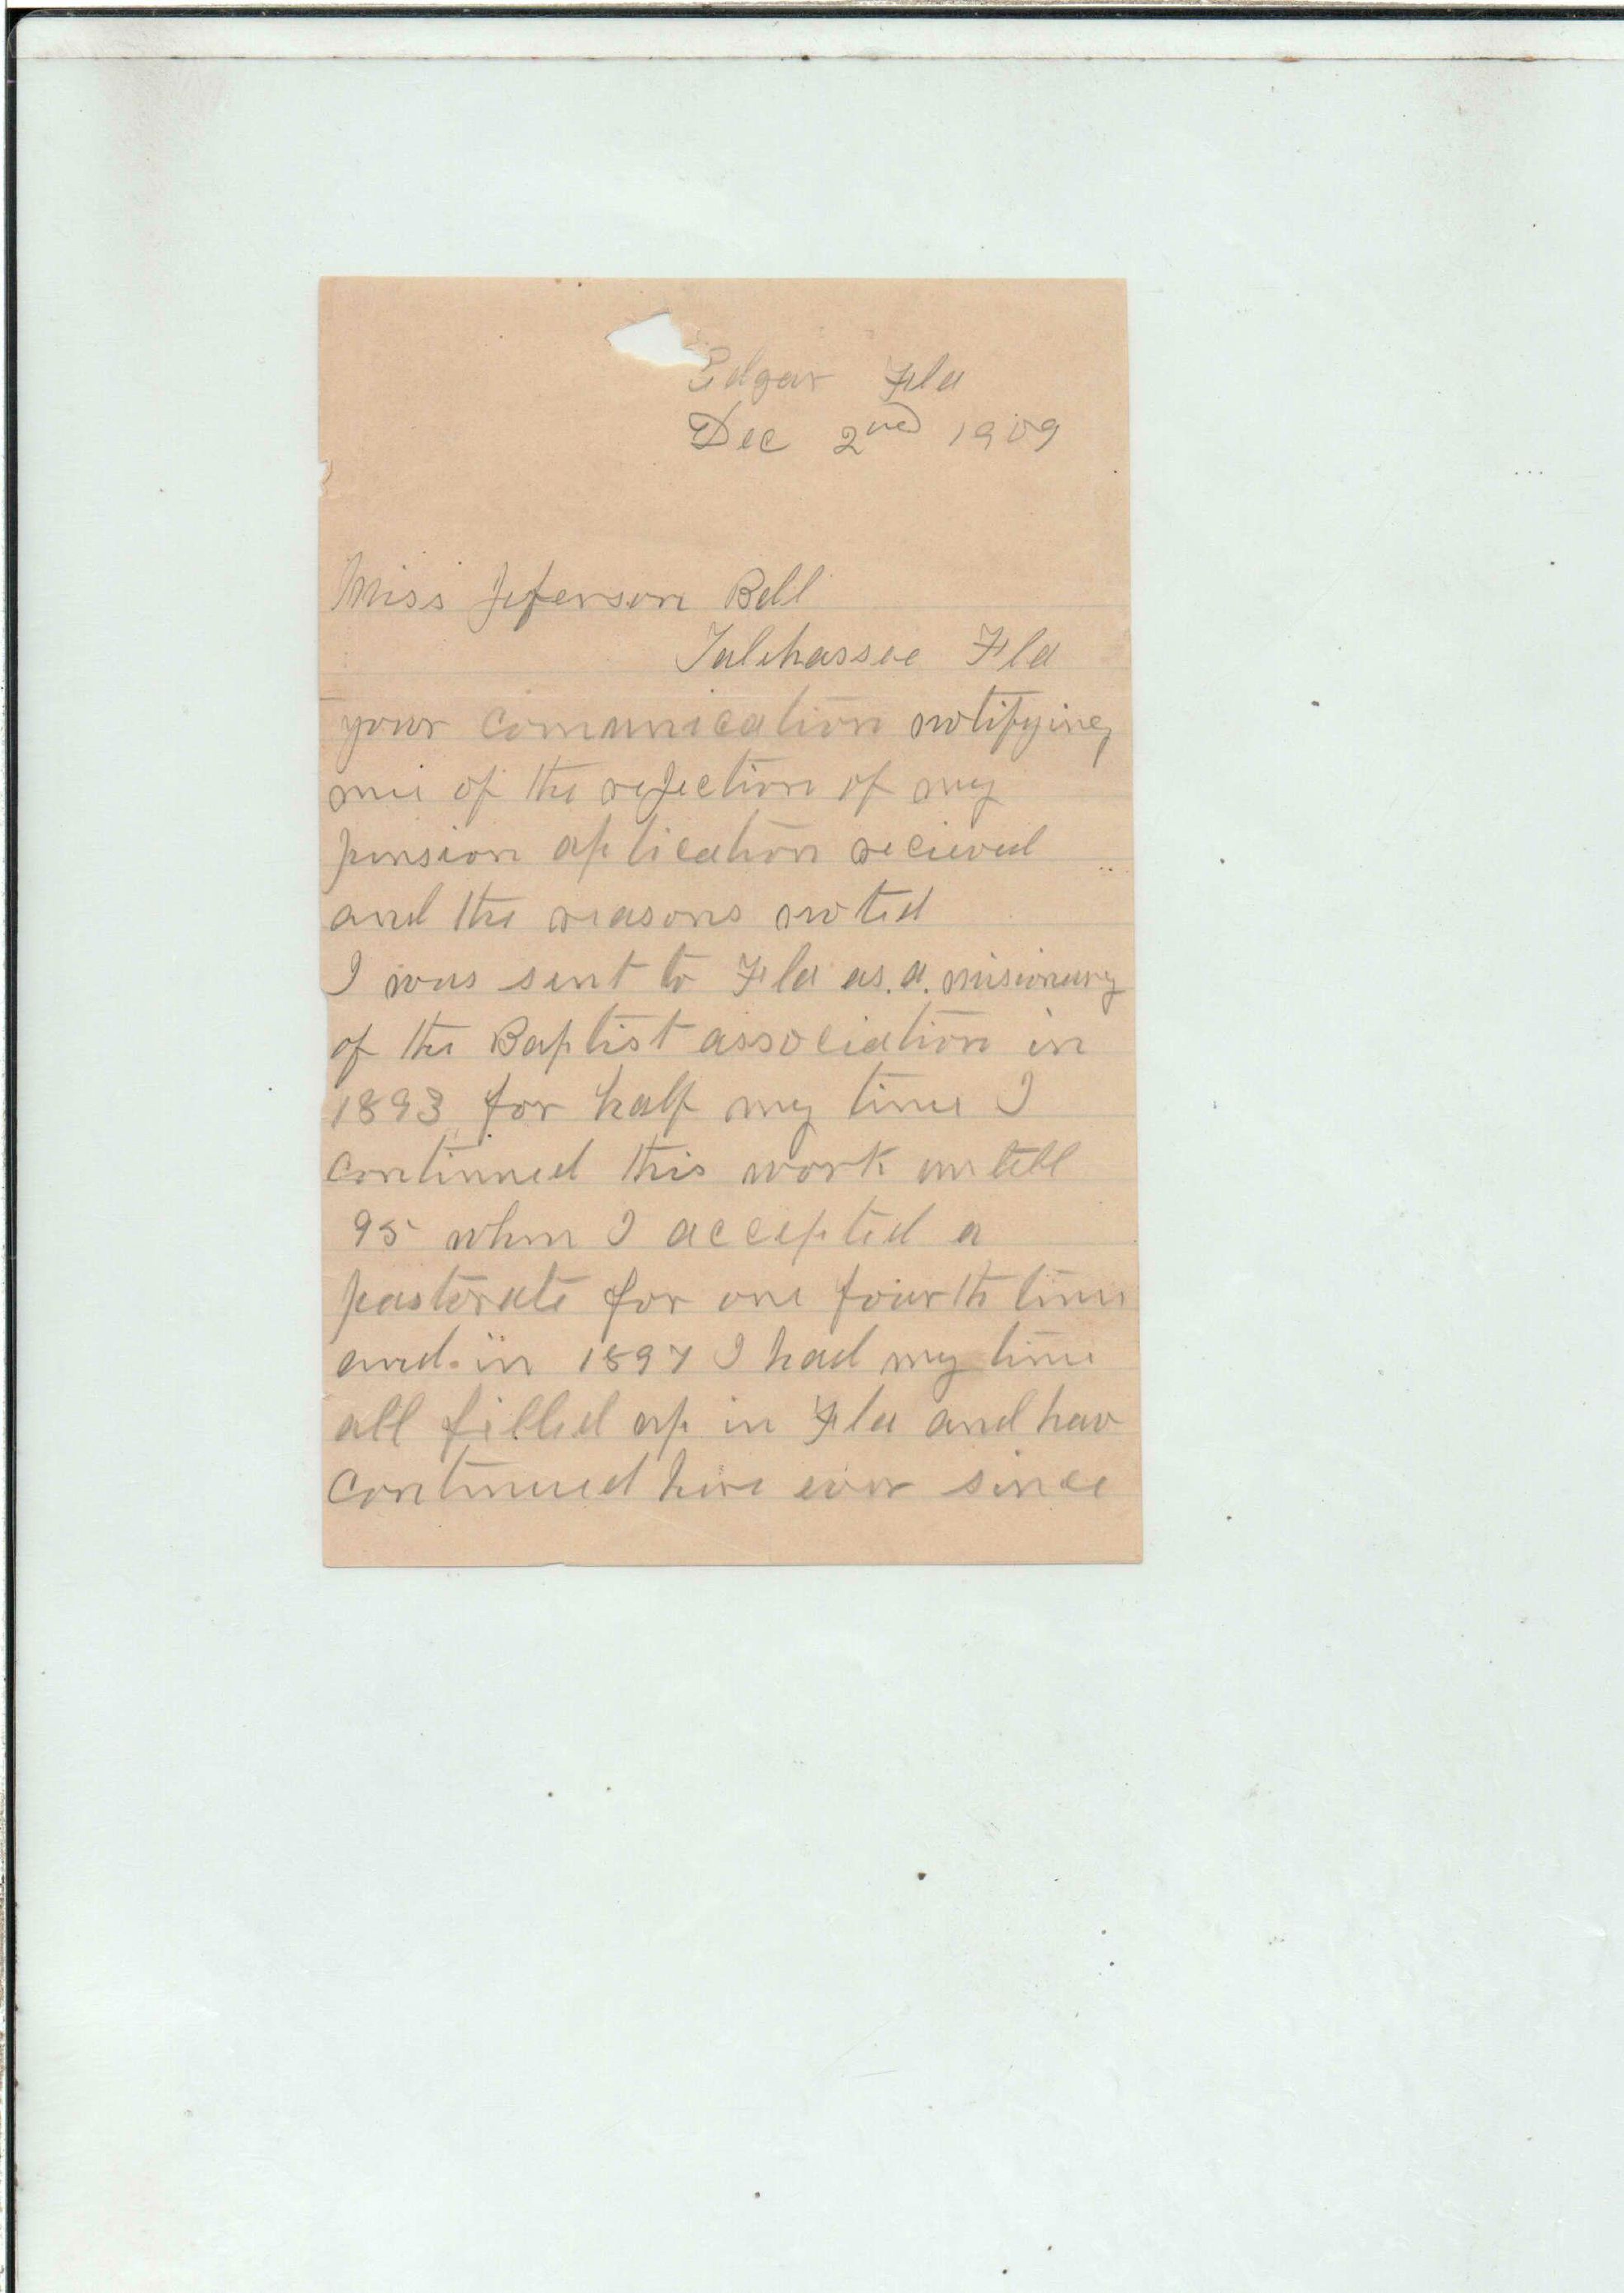 Edgar Fla
Dec 2nd 1909
Miss Jeferson Bell
Talehassee Fla
your comunication notifying
me of the rejection of my
pension aplication recieved
and the reasons noted
I was sent to Fla as. a. misionary
of the Baptist association in
1893 for half my time I
continued this work untill
95 when I accepted a
pastorate for one fourth time
and in 1897 I had my time
all filled up in Fla and hav
continued here ever since